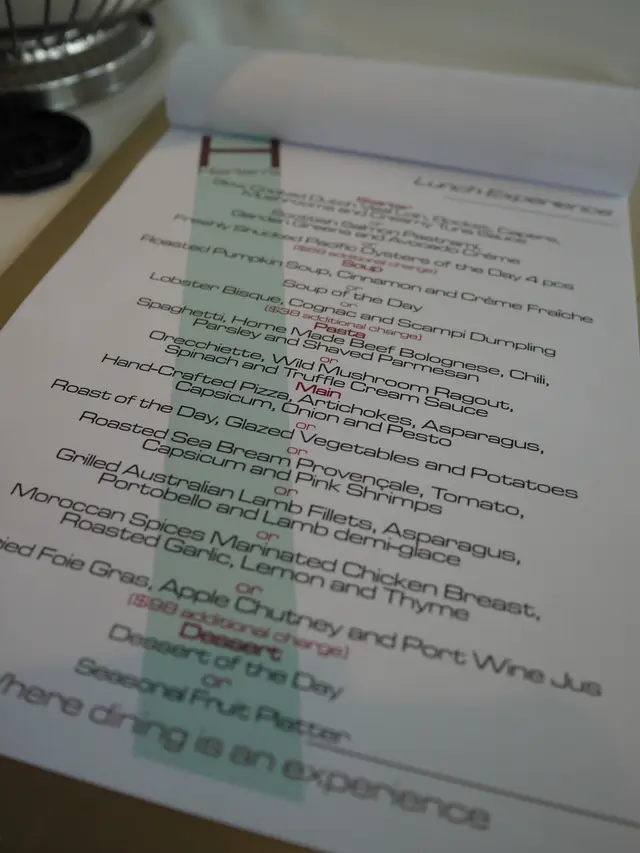 H
Lunch Experience
Starter
Slow Cooked Dutch Veal Loin, Rocket, Capers,
Mushrooms and Creamy Tuna Sauce
or
Scottish Salmon Pastrami,
Garden Greens and Avocado Crème
or
Freshly Shucked Pacific Oysters of the Day 4 pcs
additional charge)
Soup
Roasted Pumpkin Soup, Cinnamon and Crème Fraîche
or
Soup of the Day
or
Lobster Bisque, Cognac and Scampi Dumpling
($38 additional charge)
Pasta
Spaghetti, Home Made Beef Bolognese, Chili,
Parsley and Shaved Parmesan
or
Orecchiette, Wild Mushroom Ragout,
Spinach and Truffle Cream Sauce
Main
Hand-Crafted Pizza, Artichokes, Asparagus,
Capsicum, Onion and Pesto
or
Roast of the Day, Glazed Vegetables and Potatoes
or
Roasted Sea Bream Provençale, Tomato,
Capsicum and Pink Shrimps
or
Grilled Australian Lamb Fillets, Asparagus,
Portobello and Lamb demi-glace
or
Moroccan Spices Marinated Chicken Breast,
Roasted Garlic, Lemon and Thyme
or
Foie Gras, Apple Chutney and Port Wine Jus
($98 additional charge)
Dessert
Dessert of the Day
or
Seasonal Fruit Platter
Where dining is an experience